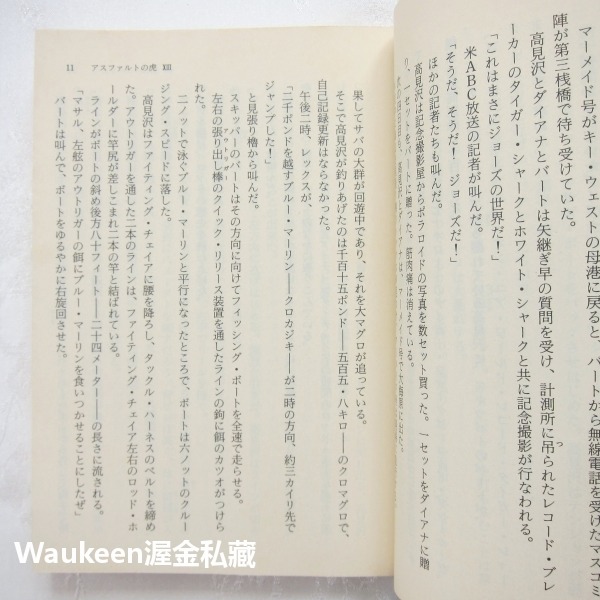 マーメイド号がキー・ウェストの母港に戻ると、バートから無線電話を受けたマスコミ
陣が第三桟橋で待ち受けていた。
高見沢とダイアナとバートは矢継ぎ早の質問を受け、計測所に吊られたレコード・ブレ
ーカーのタイガー・シャークとホワイト・シャークと共に記念撮影が行なわれる。
「これはまさにジョーズの世界だ！」
米ＡＢＣ放送の記者が叫んだ。
「そうだ、そうだ！　ジョーズだ！」
ほかの記者たちも叫んだ。
高見沢は記念撮影屋からポラロイドの写真を数セット買った。一セットをダイアナに贈
り、一セットをバートに贈った。筋肉痛は消えている。
11　アスファルトの虎 XIII
果してサバの大群が回遊中であり、それを大マグロが追っている。
そこで高見沢が釣りあげたのは千百十五ポンド——五百五・八キロ——のクロマグロで、
自己記録更新はならなかった。
午後二時、レックスが、
「二千ポンドを越すブルー・マーリン——クロカジキ——が二時の方向、約三カイリ先で
ジャンプした！」
と見張り櫓から叫んだ。
スキッパーのバートはその方向に向けてフィッシング・ボートを全速で走らせる。
左右の張り出し棒のクイック・リリース装置を通したラインの鉤に餌のカツオがつけら
れた。
二ノットで泳ぐブルー・マーリンと平行になったところで、ボートは六ノットのクルー
ジング・スピードに落した。
高見沢はファイティング・チェイアに腰を降ろし、タックル・ハーネスのベルトを締め
た。アウトリガーを通した二本のラインは、ファイティング・チェイア左右のロッド・ホ
ールダーに竿尻が差しこまれ二本の竿と結ばれている。
ラインがボートの斜め後方八十フィート——二十四メーター——の長さに流される。
「マサル、左舷のアウトリガーの餌にブルー・マーリンを食いつかせることにしたぜ」
バートは叫んで、ボートをゆるやかに右旋回させた。
Waukeen渥金私藏